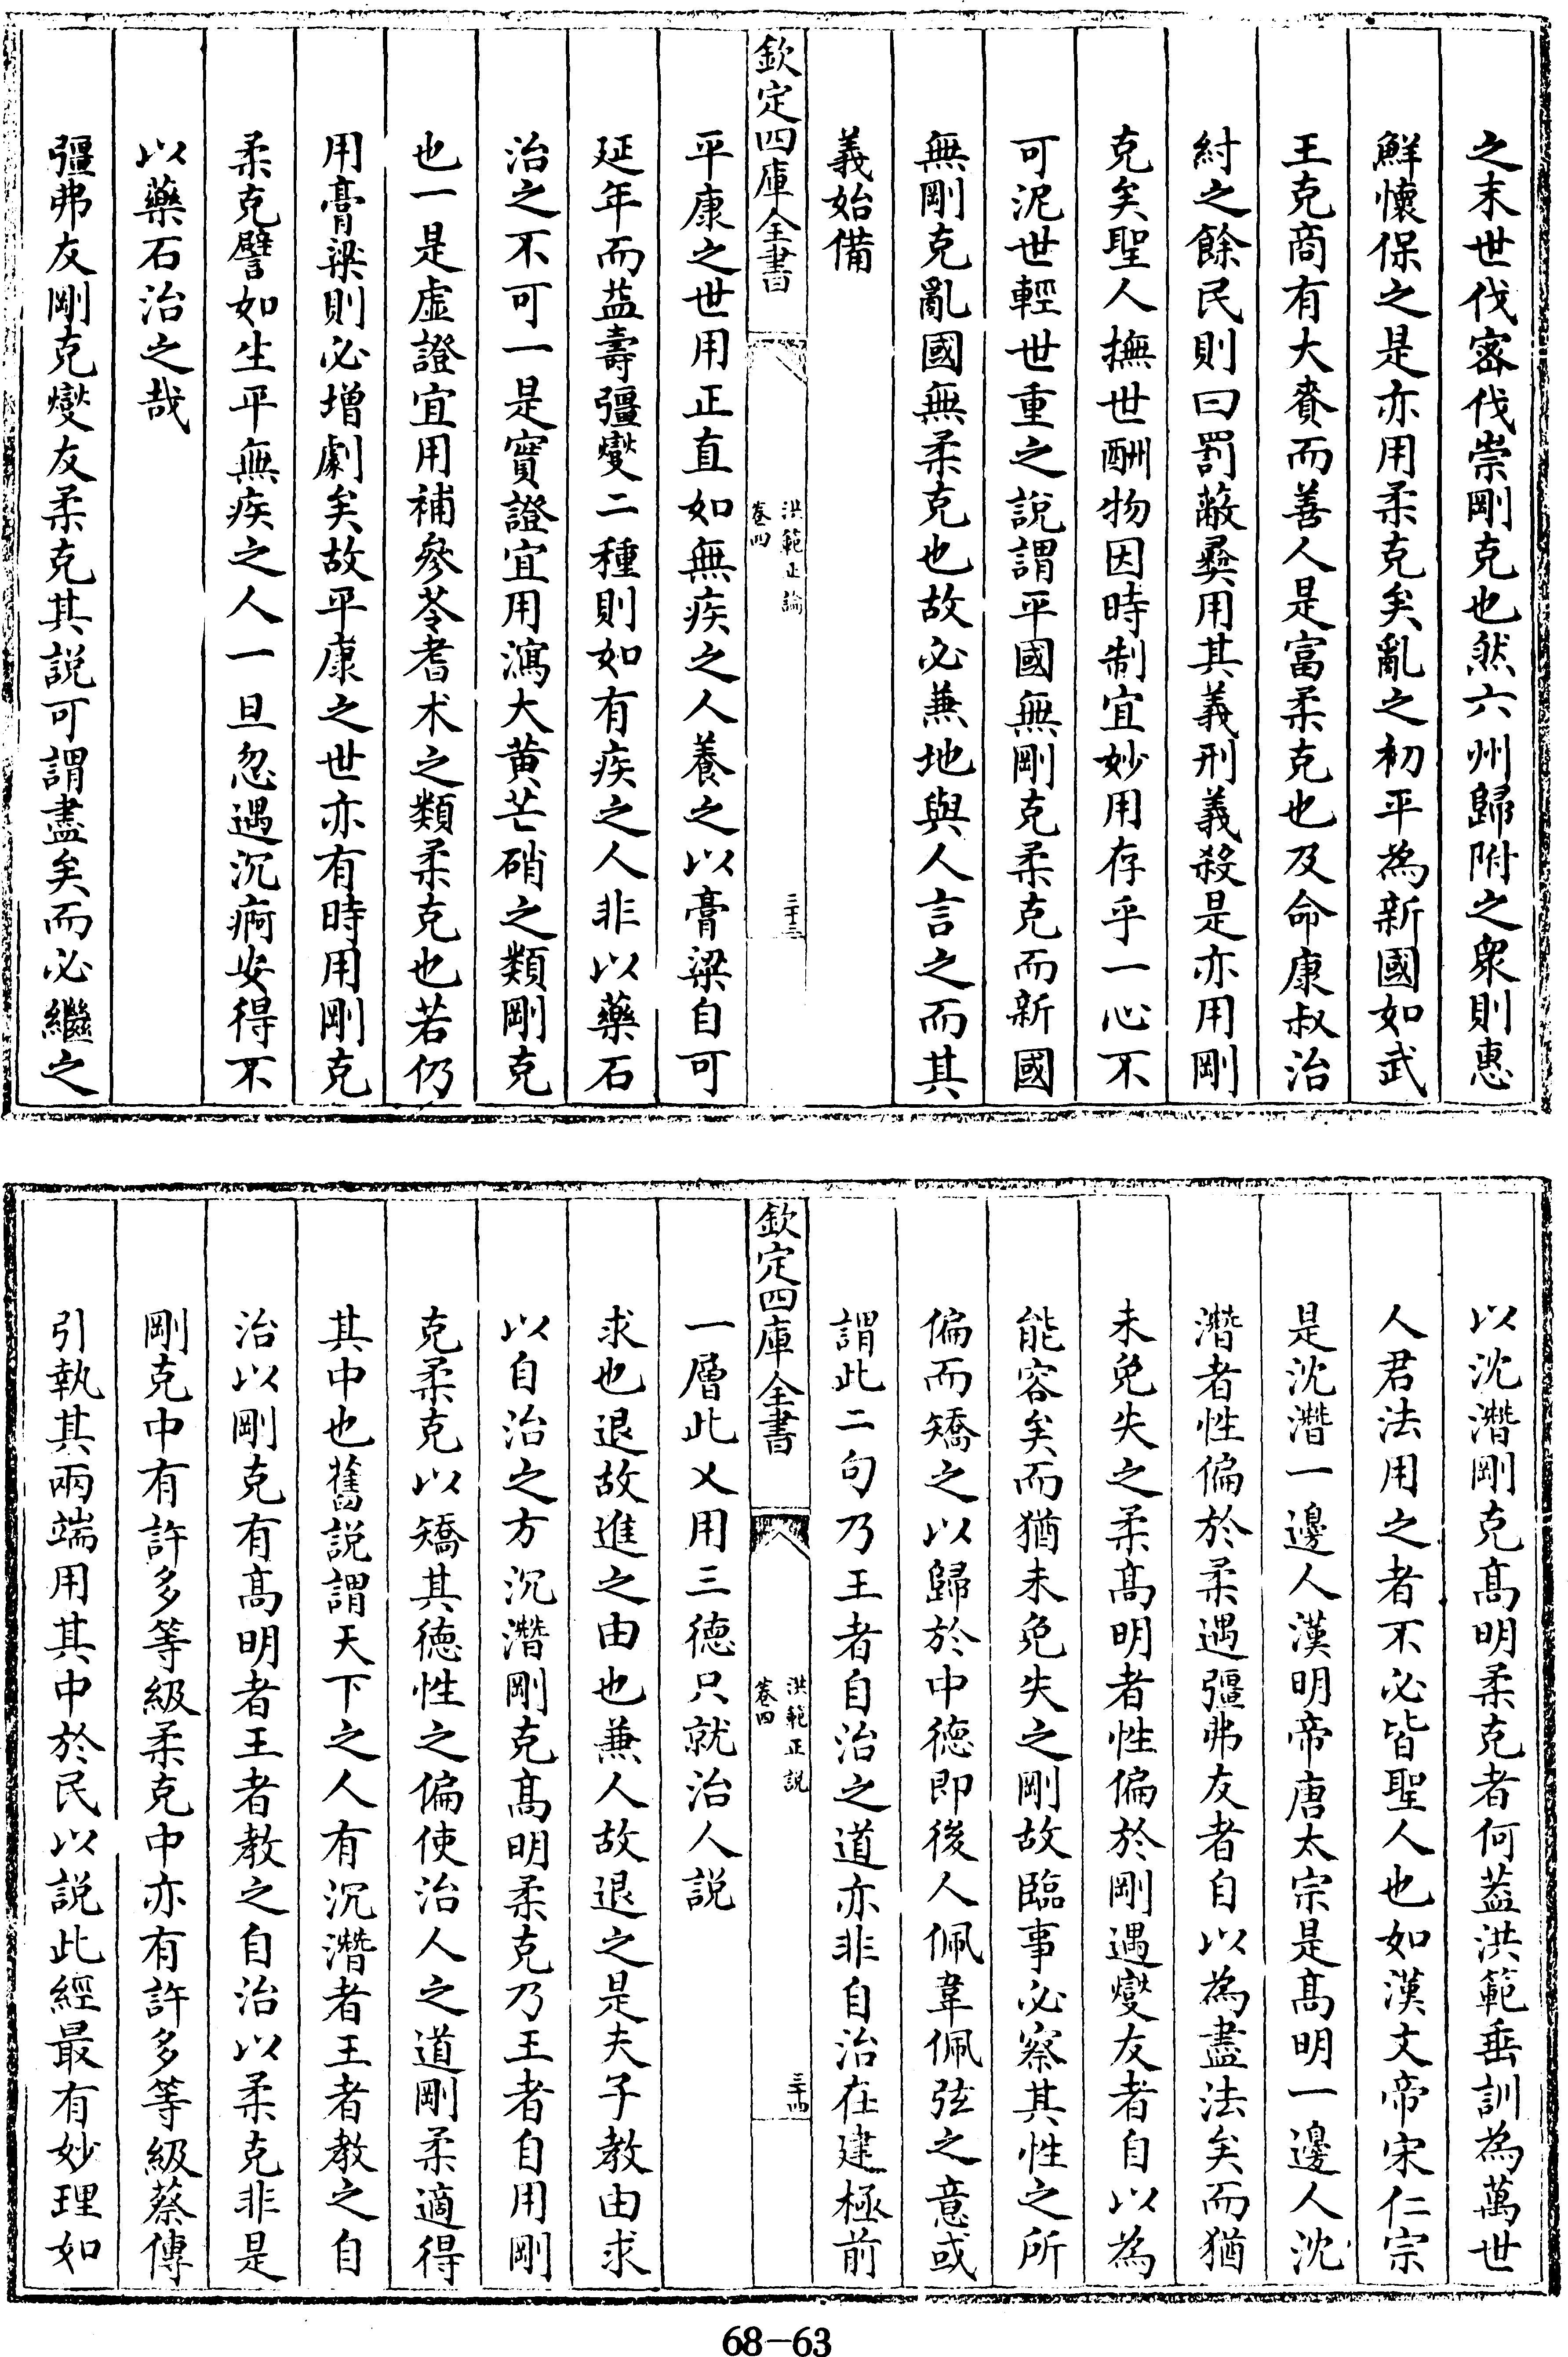 之末世伐密伐崇剛克也然六州歸附之衆則惠
鮮懷保之是亦用柔克矣亂之初平為新國如武
王克商有大賚而善人是富柔克也及命康叔治
紂之餘民則曰罰蔽彞用其義刑義殺是亦用剛
克矣聖人撫世酬物因時制宜妙用存乎一心不
可泥世輕世重之説謂平國無剛克柔克而新國
無剛克亂國無柔克也故必兼地與人言之而其
義始備
欽定四庫全書
洪範正論
卷四
三十三
平康之世用正直如無疾之人養之以膏粱自可
延年而益壽彊爕二種則如有疾之人非以藥石
治之不可一是實證宜用瀉大黄芒硝之類剛克
也一是虚證宜用補參苓耆术之類柔克也若仍
用膏粱則必增劇矣故平康之世亦有時用剛克
柔克譬如生平無疾之人一旦忽遇沉痾安得不
以藥石治之哉
彊弗友剛克爕友柔克其説可謂盡矣而必繼之
以沈潛剛克髙明柔克者何葢洪範垂訓為萬世
人君法用之者不必皆聖人也如漢文帝宋仁宗
是沈潛一邊人漢明帝唐太宗是髙明一邊人沈
潛者性偏於柔遇彊弗友者自以為盡法矣而猶
未免失之柔髙明者性偏於剛遇爕友者自以為
能容矣而猶未免失之剛故臨事必察其性之所
偏而矯之以歸於中徳即後人佩韋佩弦之意或
謂此二句乃王者自治之道亦非自治在建極前
欽定四庫全書
洪範正説
卷四
三十四
一層此乂用三徳只就治人説
求也退故進之由也兼人故退之是夫子教由求
以自治之方沉潛剛克髙明柔克乃王者自用剛
克柔克以矯其徳性之偏使治人之道剛柔適得
其中也舊説謂天下之人有沉潛者王者教之自
治以剛克有髙明者王者教之自治以柔克非是
剛克中有許多等級柔克中亦有許多等級蔡傳
引執其兩端用其中於民以説此經最有妙理如
68-63